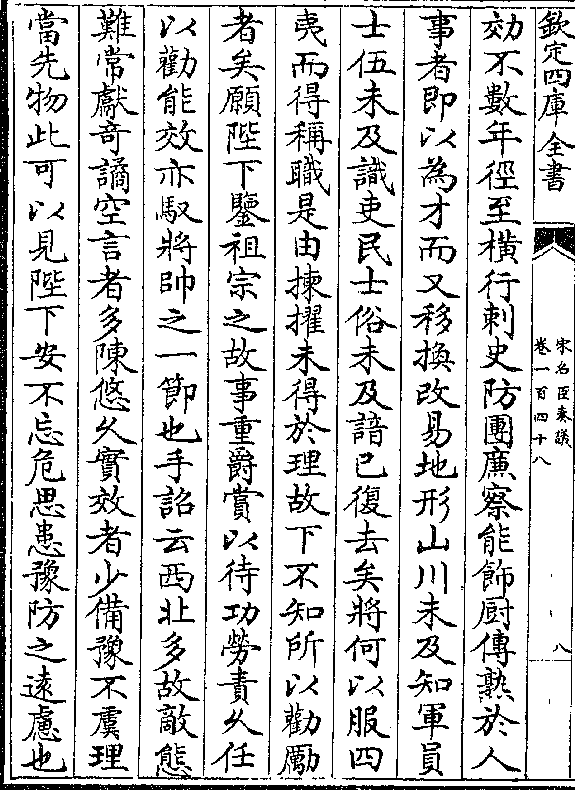 欽定四庫全書
宋名臣奏議
卷一百四十八
八
効不數年徑至橫行刺史防團廉察能飾厨傳熟於人
事者即以為才而又移換改易地形山川未及知軍員
士伍未及識吏民士俗未及諳已復去矣將何以服四
夷而得稱職是由揀擢未得於理故下不知所以勸勵
者矣願陛下鑒祖宗之故事重爵賞以待功勞責乆任
以勸能效亦馭將帥之一節也手詔云西北多故敵態
難常獻奇譎空言者多陳悠乆實效者少備豫不虞理
當先物此可以見陛下安不忘危思患豫防之遠慮也